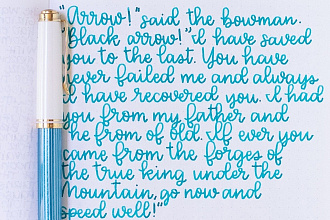 "Arrow!" said the bowman.
"Black arrow! I have saved
you to the last. You have
never failed me and always
I have recovered you. I had
you from my father and
he from of old. If ever you
came from the forges of
the true king under the
Mountain, go now and
speed well!"